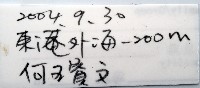 2004. 9. 30
東港外海-200m
何
文